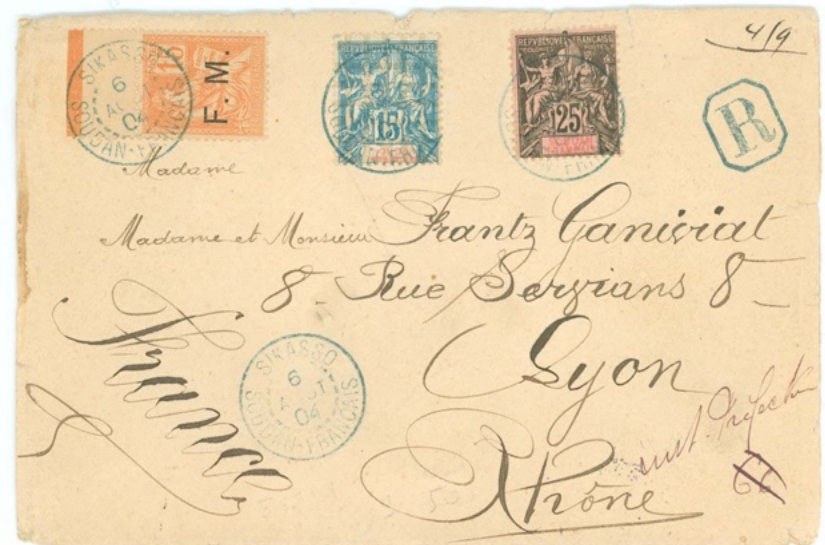 4/9
SIKASSO
6
AOUT
04
SOUDAN-FRANÇAIS
15
F.M.
REPUBLIQUE FRANÇAISE
15
REPUBLIQUE FRANÇAISE
25
R
Madame
Madame et Monsieur Frantz Ganiviat
8 - Rue Servians 8 -
Lyon
Rhône
France
SIKASSO
6
AOUT
04
SOUDAN-FRANÇAIS
66